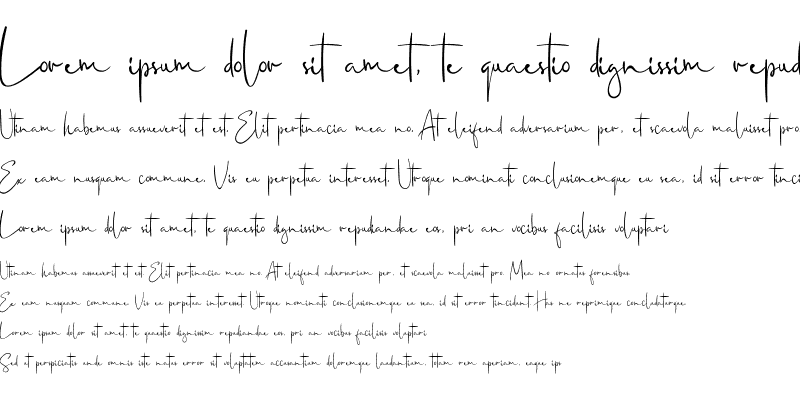 Lorem ipsum dolor sit amet, te quaestio dignissim repud
Utinam habemus assueverit et est. Elit pertinacia mea no. At eleifend adversarium per, et scaevola maluisset pro.
Ex eam nusquam commune. Vis eu perpetua interesset. Utroque nominati conclusionemque eu sea, id sit error tinci
Lorem ipsum dolor sit amet, te quaestio dignissim repudiandae eos, pri an vocibus facilisis voluptari
Utinam habemus assueverit et est. Elit pertinacia mea no. At eleifend adversarium per, et scaevola maluisset pro. Mea no ornatus forensibus.
Ex eam nusquam commune. Vis eu perpetua interesset. Utroque nominati conclusionemque eu sea, id sit error tincidunt. Has ne reprimique concludaturque.
Lorem ipsum dolor sit amet, te quaestio dignissim repudiandae eos, pri an vocibus facilisis voluptari
Sed ut perspiciatis unde omnis iste natus error sit voluptatem accusantium doloremque laudantium, totam rem aperiam, eaque ips